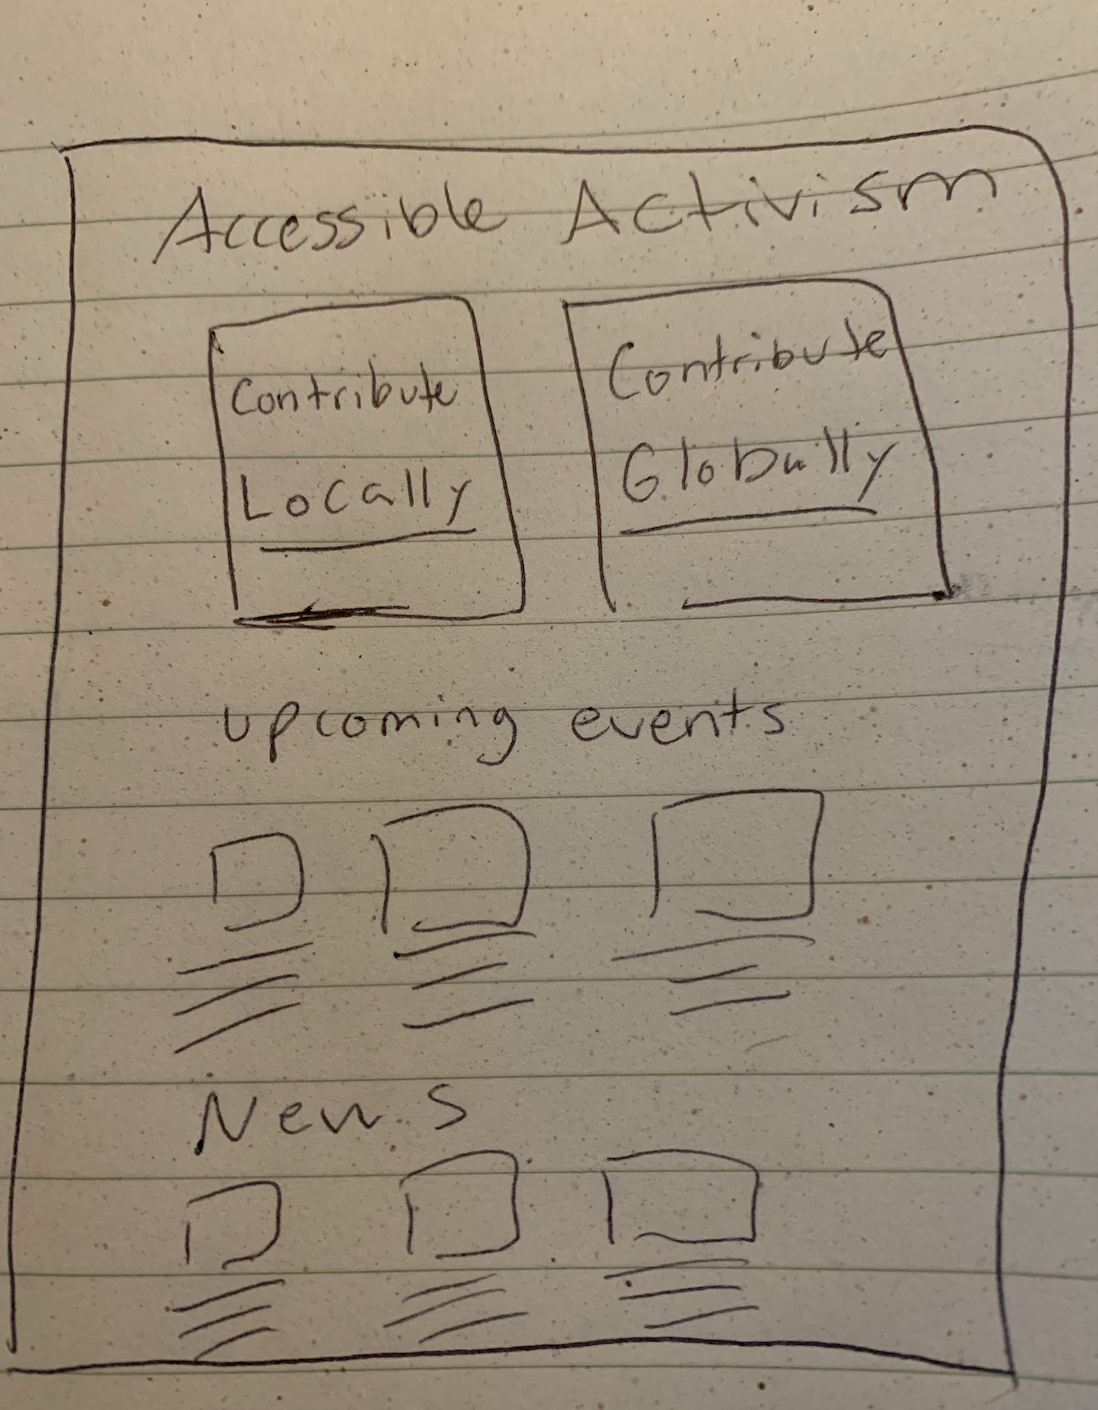 Accessible Activism
Contribute
Locally
Contribute
Globally
upcoming events
News